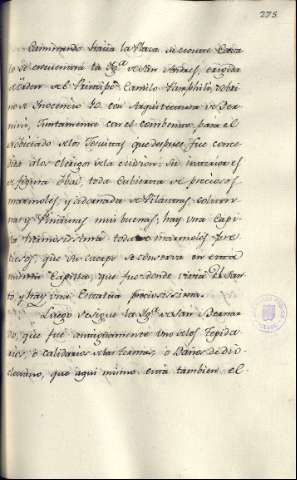 275
Caminando hacia la Plaza de Monte Cava
lo se encuentra la Yg.ª de San Andres, erigida
de orden de el Principe Camilo Pamphilo, sobri
no de Inocencio 10 con Arquitectura de Ber
nini, Juntamente con el combento, para el
Noviciado de los Jesuitas que despues fue conce
dido a los Clerigos de la Mision. Su interior es
de forma Obal, toda Cubierta de preciosos
marmoles, y adornada de Pilastras colum
nas y Pinturas muy buenas, hay una Capi
lla toda de marmoles pre
ciosos, que su cuerpo se conserva en esta
misma Capilla, que fue donde vivia el San
to, y hay una Estatua preciosisima.
Luego se sigue la Yg.ª de San Bernar
do, que fue antiguamente uno de los Tepida
rios, o calidarios de las termas, o Baños de Dio
cleciano, que aqui mismo esta tambien el